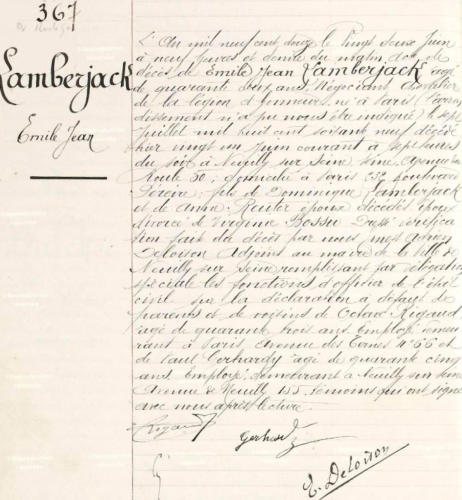 367
Lamberjack
Emile Jean
L'An mil neuf cent douze le Vingt deux Juin
à neuf heures et demie du matin Acte de
décès de Emile Jean Lamberjack âgé
de quarante deux ans, Négociant Chevalier
de la légion d'honneur, né à Paris
dissement n'a pu nous être indiqué le sept
Juillet mil huit cent soixante neuf décédé
hier vingt un Juin courant à sept heures
du soir à Neuilly sur Seine
Route 30, domicilié à Paris 132 boulevard
Pereire, fils de Dominique Lamberjack
et de Anna Reuter époux décédés époux
divorcé de Virginie Bossu Dressé vérification
fait du décès par nous
Deloison Adjoint au maire de la Ville de
Neuilly sur Seine remplissant par délégation
spéciale les fonctions d'officier de l'état
civil sur la déclaration à défaut de
parents et de voisins de Octave Rigaud
âgé de quarante trois ans Employé demeu
rant à Paris, Avenue des Ternes N° 66 et
de Paul Gerhardy âgé de quarante cinq
ans Employé demeurant à Neuilly sur Seine
Avenue de Neuilly 125 témoins qui ont signé
avec nous après lecture.
Rigaud
Gerhardy
E. Deloison